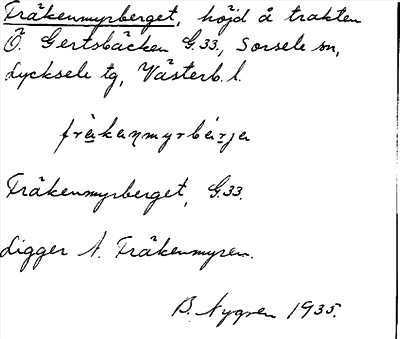 Fräkenmyrberget, höjd å trakten
Ö. Gertsbäcken G.33., Sorsele sn,
Lycksele tg, Västerb. l.
frä̀kaṇmyrbä́rjə
Fräkenmyrberget, G.33.
Ligger N. Fräkenmyren.
B. Nygren 1935.